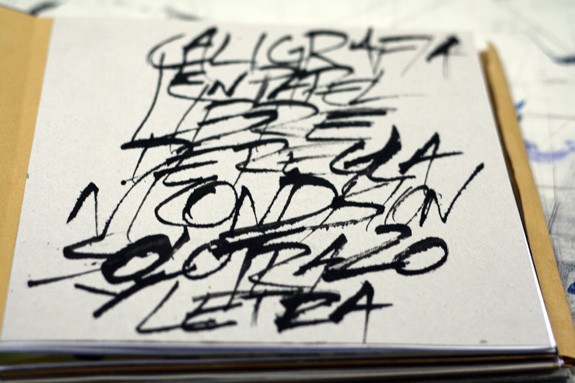 CALIGRAFIA
EN PAPEL
LIBRE
DE REGLA
NI CONDISION
SOLO TRAZO
Y LETRA